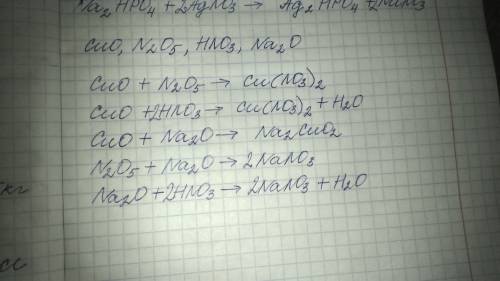 Na₂HPO₄ + 2AgNO₃ → Ag₂HPO₄ + 2NaNO₃
CuO, N₂O₅, HNO₃, Na₂O
CuO + N₂O₅ → Cu(NO₃)₂
CuO + 2HNO₃ → Cu(NO₃)₂ + H₂O
CuO + Na₂O → Na₂CuO₂
N₂O₅ + Na₂O → 2NaNO₃
Na₂O + 2HNO₃ → 2NaNO₃ + H₂O